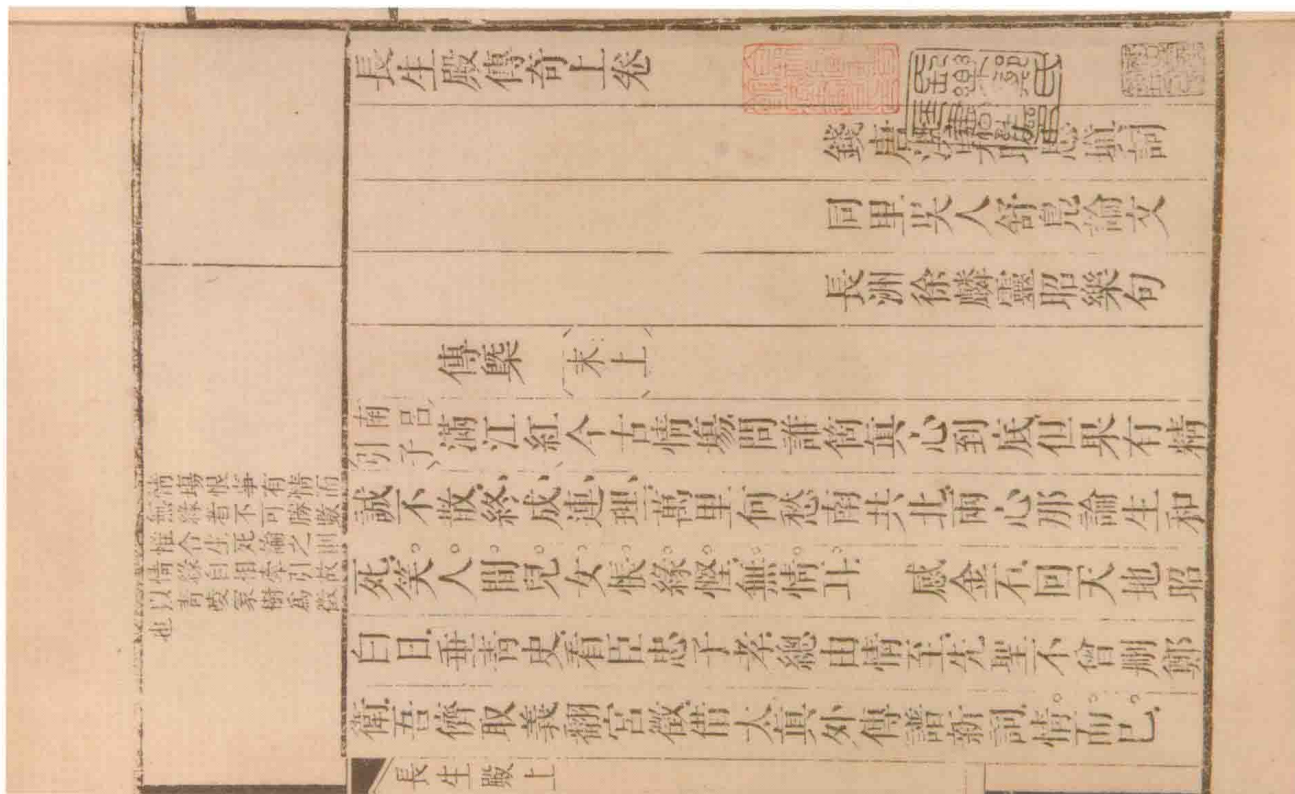 長生殿傳奇上卷
錢唐洪昇昉思填詞
同里吳人舒鳧論文
長洲徐麟靈昭樂句
傳槩 末上
南呂引子 滿江紅今古情場問誰箇真心到底但果有精
誠不散終成連理萬里何愁南共北兩心那論生和
死笑人間兒女悵緣慳無情耳 感金石回天地昭
白日垂青史看臣忠子孝總由情至先聖不曾刪鄭
衛吾儕取義翻宮徵借太真外傳譜新詞情而已
情場恨事有情而
無緣者不可勝數
惟合生死論之則
情緣自相牽引故
以青陵冢樹爲徵
也
長生殿上